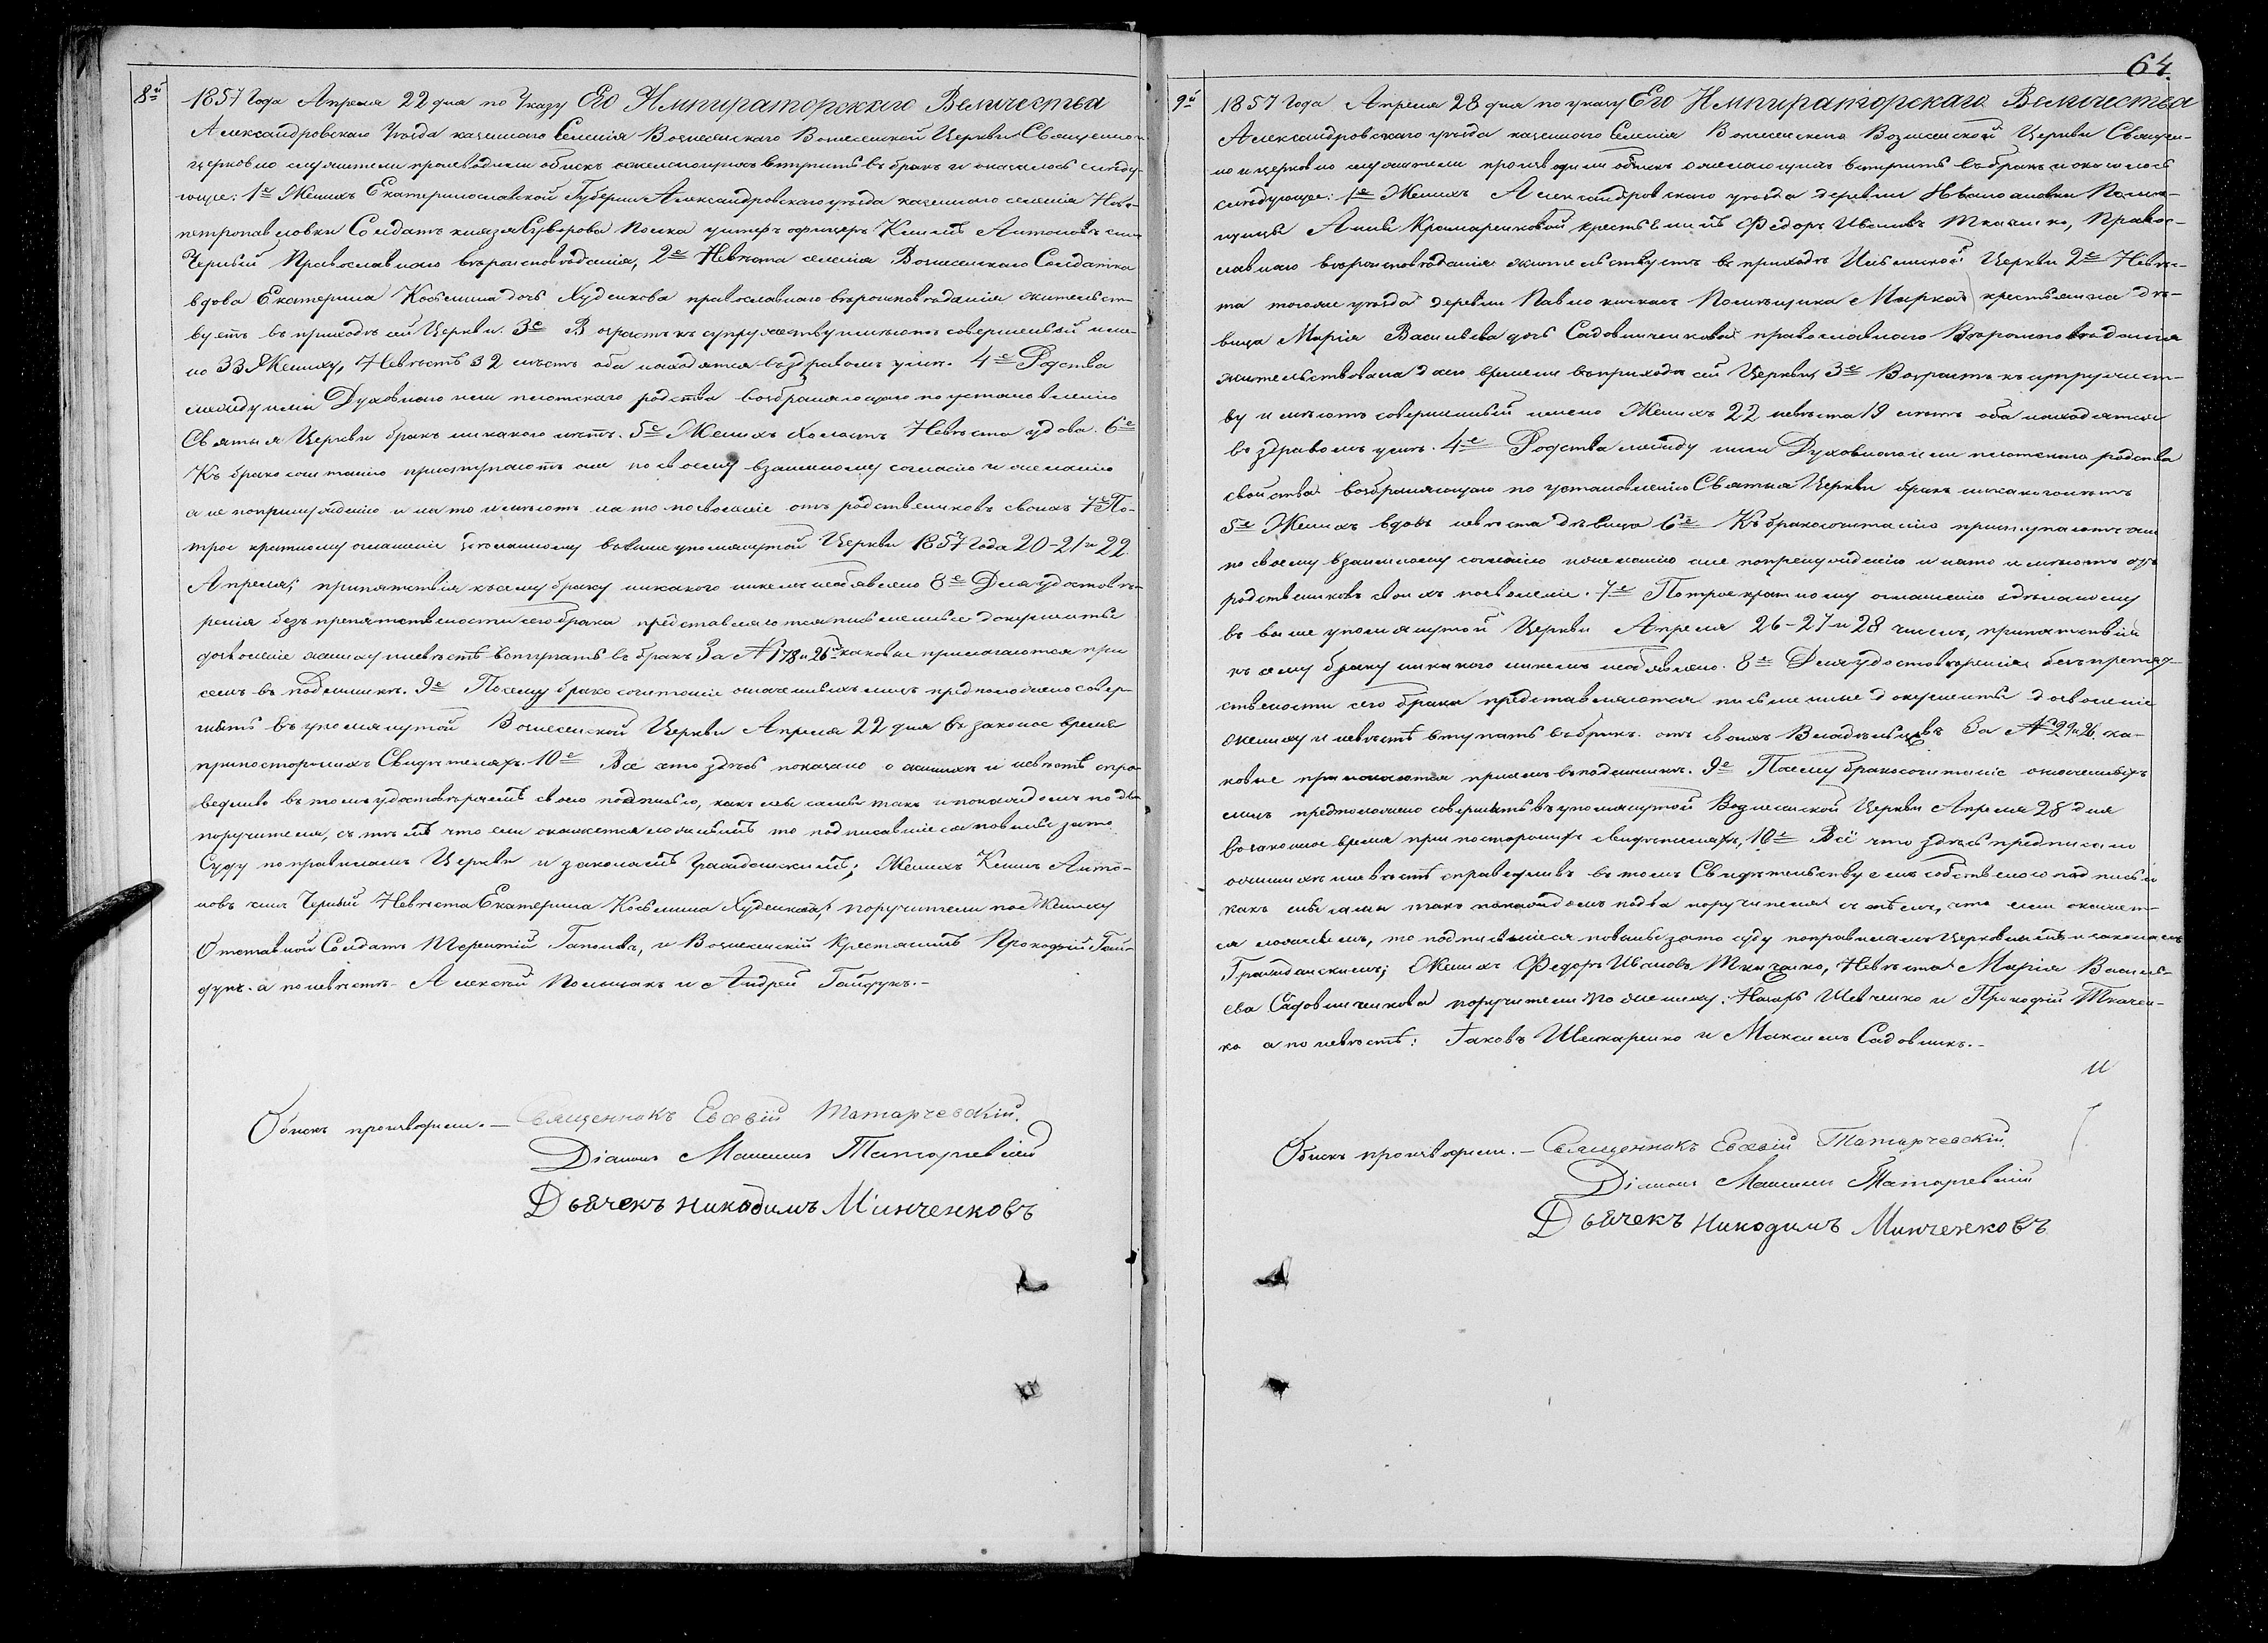 8й
1857 Года Апреля 22 дня по Указу Его Императорскаго Величества
Александровскаго Уѣзда казенного Селенія Вознесенскаго Вознесенской Церкви Священно и
церковно служители производили обыскъ о желающихъ вступить въ бракъ и оказалось слѣду-
ющее: 1е Женихъ Екатеринославской Губерніи Александровскаго уѣзда казенного селенія Ново-
петропавловки Солдатъ князя Суворова Полка унтеръ офицеръ Антоновъ сынъ
Черный Православнаго вѣроисповѣданія, 2е Невѣста селенія Вознесенскаго Солдатка
вдова Екатерина Косьмина дочь Худенкова православнаго вѣроисповѣданія жительст-
вуетъ въ приходѣ сей Церкви. 3е Возрастъ къ супружеству имѣютъ совершенный име-
но 33 Жениху, Невѣстѣ 32 лѣтъ оба находятся въ здравомъ умѣ. 4е Родства
между ими Духовнаго или плотскаго родства возбраняющаго по установленію
Святыя Церкви бракъ никакого нѣтъ. 5е Женихъ Холостъ Невѣста вдова. 6е
Къ бракосочитанію приступаютъ они по своему взаимному согласію и желанію
а не попринужденію и на то имѣютъ на то позволеніе отъ родственниковъ своихъ 7е По-
трое кратному оглашеніе зделанному въ выше упомянутой Церкви 1857 Года 20-21 и 22
Апреля; припятствія къ сему браку никакого никемъ необявлено 8е Для удостовѣ-
ренія безъ препятственности сего брака представляются письменные документы
дозволеніе жениху и невѣстѣ вступить въ бракъ За № 178 и 26 каковые прилагаются при
семъ въ подлинникѣ. 9е Посему бракосочитаніе означенныхъ лицъ предположено совер-
шить въ упомянутой Вознесенской Церкви Апреля 22 дня въ законое время
припостороннихъ Свидѣтеляхъ. 10е Всё что здѣсь показано о женихѣ и невѣстѣ спра-
ведливо въ томъ удостовѣряемъ своею подписью, какъ мы сами такъ и по каждомъ по два
поручителя, съ тѣмъ что если окажется ложнымъ то подписавшіеся повинны зато
Суду по правиламъ Церкви и законамъ Гражданскимъ; Женихъ Анто-
новъ сынъ Черный Невѣста Екатерина Косьмина Худенкова, поручители по Жениху
Отставной Солдатъ Терентій и Вознесенскій Крестянинъ Прокофій Гай-
дукъ. а по невѣстѣ- Алексѣй и Андрей Гайдукъ.-
Обыскъ производили.- Священникъ Евсевій Татарчевскій.
Діаконъ Татарчевскій
Дьячекъ Никодимъ Минченковъ
64.
9й
1857 Года Апреля 28 дня по указу Его Императорскаго Величества
Александровскаго уѣзда казенного Селенія Вознесенскаго Вознесенской Церкви Священ-
но и церковно служители производили обыскъ о желающихъ вступить въ бракъ и оказалось
слѣдующее: 1е Женихъ Александровскаго уѣзда деревни Помѣ-
щицы Анны крестьянинъ Федоръ Ивановъ Ткаченко, Правос-
лавнаго вѣроисповѣданія жительствуетъ въ приходѣ Церкви 2е Невѣс-
та тогоже уѣзда деревни Павло Помѣщика Марка крестьянка дѣ-
вица Марія Васильева дочь Садовниченкова православнаго Вѣроисповѣданія
жительствовала до сего времени въ приходѣ сей Церкви, 3е Возрастъ къ супружест-
ву имѣютъ совершенный имено Женихъ 22 невѣста 19 лѣтъ оба находятся
въ здравомъ умѣ. 4е Родства между ими Духовнаго или плотскаго родства
свойства возбраняющаго по установленію Святыя Церкви бракъ никакого нѣтъ
5е Женихъ вдовъ невѣста дѣвица 6е Къ бракосочитанію приступаютъ они
по своему взаимному согласію и желанію а не попринужденію и на то имѣютъ отъ
родственниковъ своихъ позволеніе. 7е Потроекратному оглашенію зделаному
въ выше упомянутой Церкви Апреля 26-27 и 28 чиселъ, припятствій
къ сему браку никакого никемъ необявлено. 8е Для удостовѣренія безъ препят-
ственности сего брака представляются письменные документы дозволеніе
жениху и невѣстѣ вступить въ бракъ. отъ своихъ Владѣльцевъ За № 29 и 26. ка-
ковые прилагаются присемъ въ подлинникѣ. 9е Посему бракосочитаніе означенныхъ
лицъ предположено совершить въ упомянутой Вознесенской Церкви Апреля 28 дня
въ законное время при постороннихъ свидѣтеляхъ, 10е Всё что здѣсь предписано
о женихѣ и невѣстѣ справедливо въ томъ Свидѣтельствуемъ собственою подписью
какъ мы сами такъ и по каждомъ по два поручителя съ тѣмъ, что если окажет-
ся ложнымъ, то подписавшіеся повинны зато суду по правиламъ Церковнымъ и законамъ
Гражданскимъ; Женихъ Федоръ Ивановъ Ткаченко, Невѣста Марія Василь-
ева Садовниченкова поручители по жениху: Назаръ Шевченко и Прокофій Ткачен-
ко а по невѣстѣ: Іаковъ и Максимъ Садовникъ.-
Обыскъ производили.- Священникъ Евсевій Татарчевскій.
Діаконъ Татарчевскій
Дьячекъ Никодимъ Минченковъ